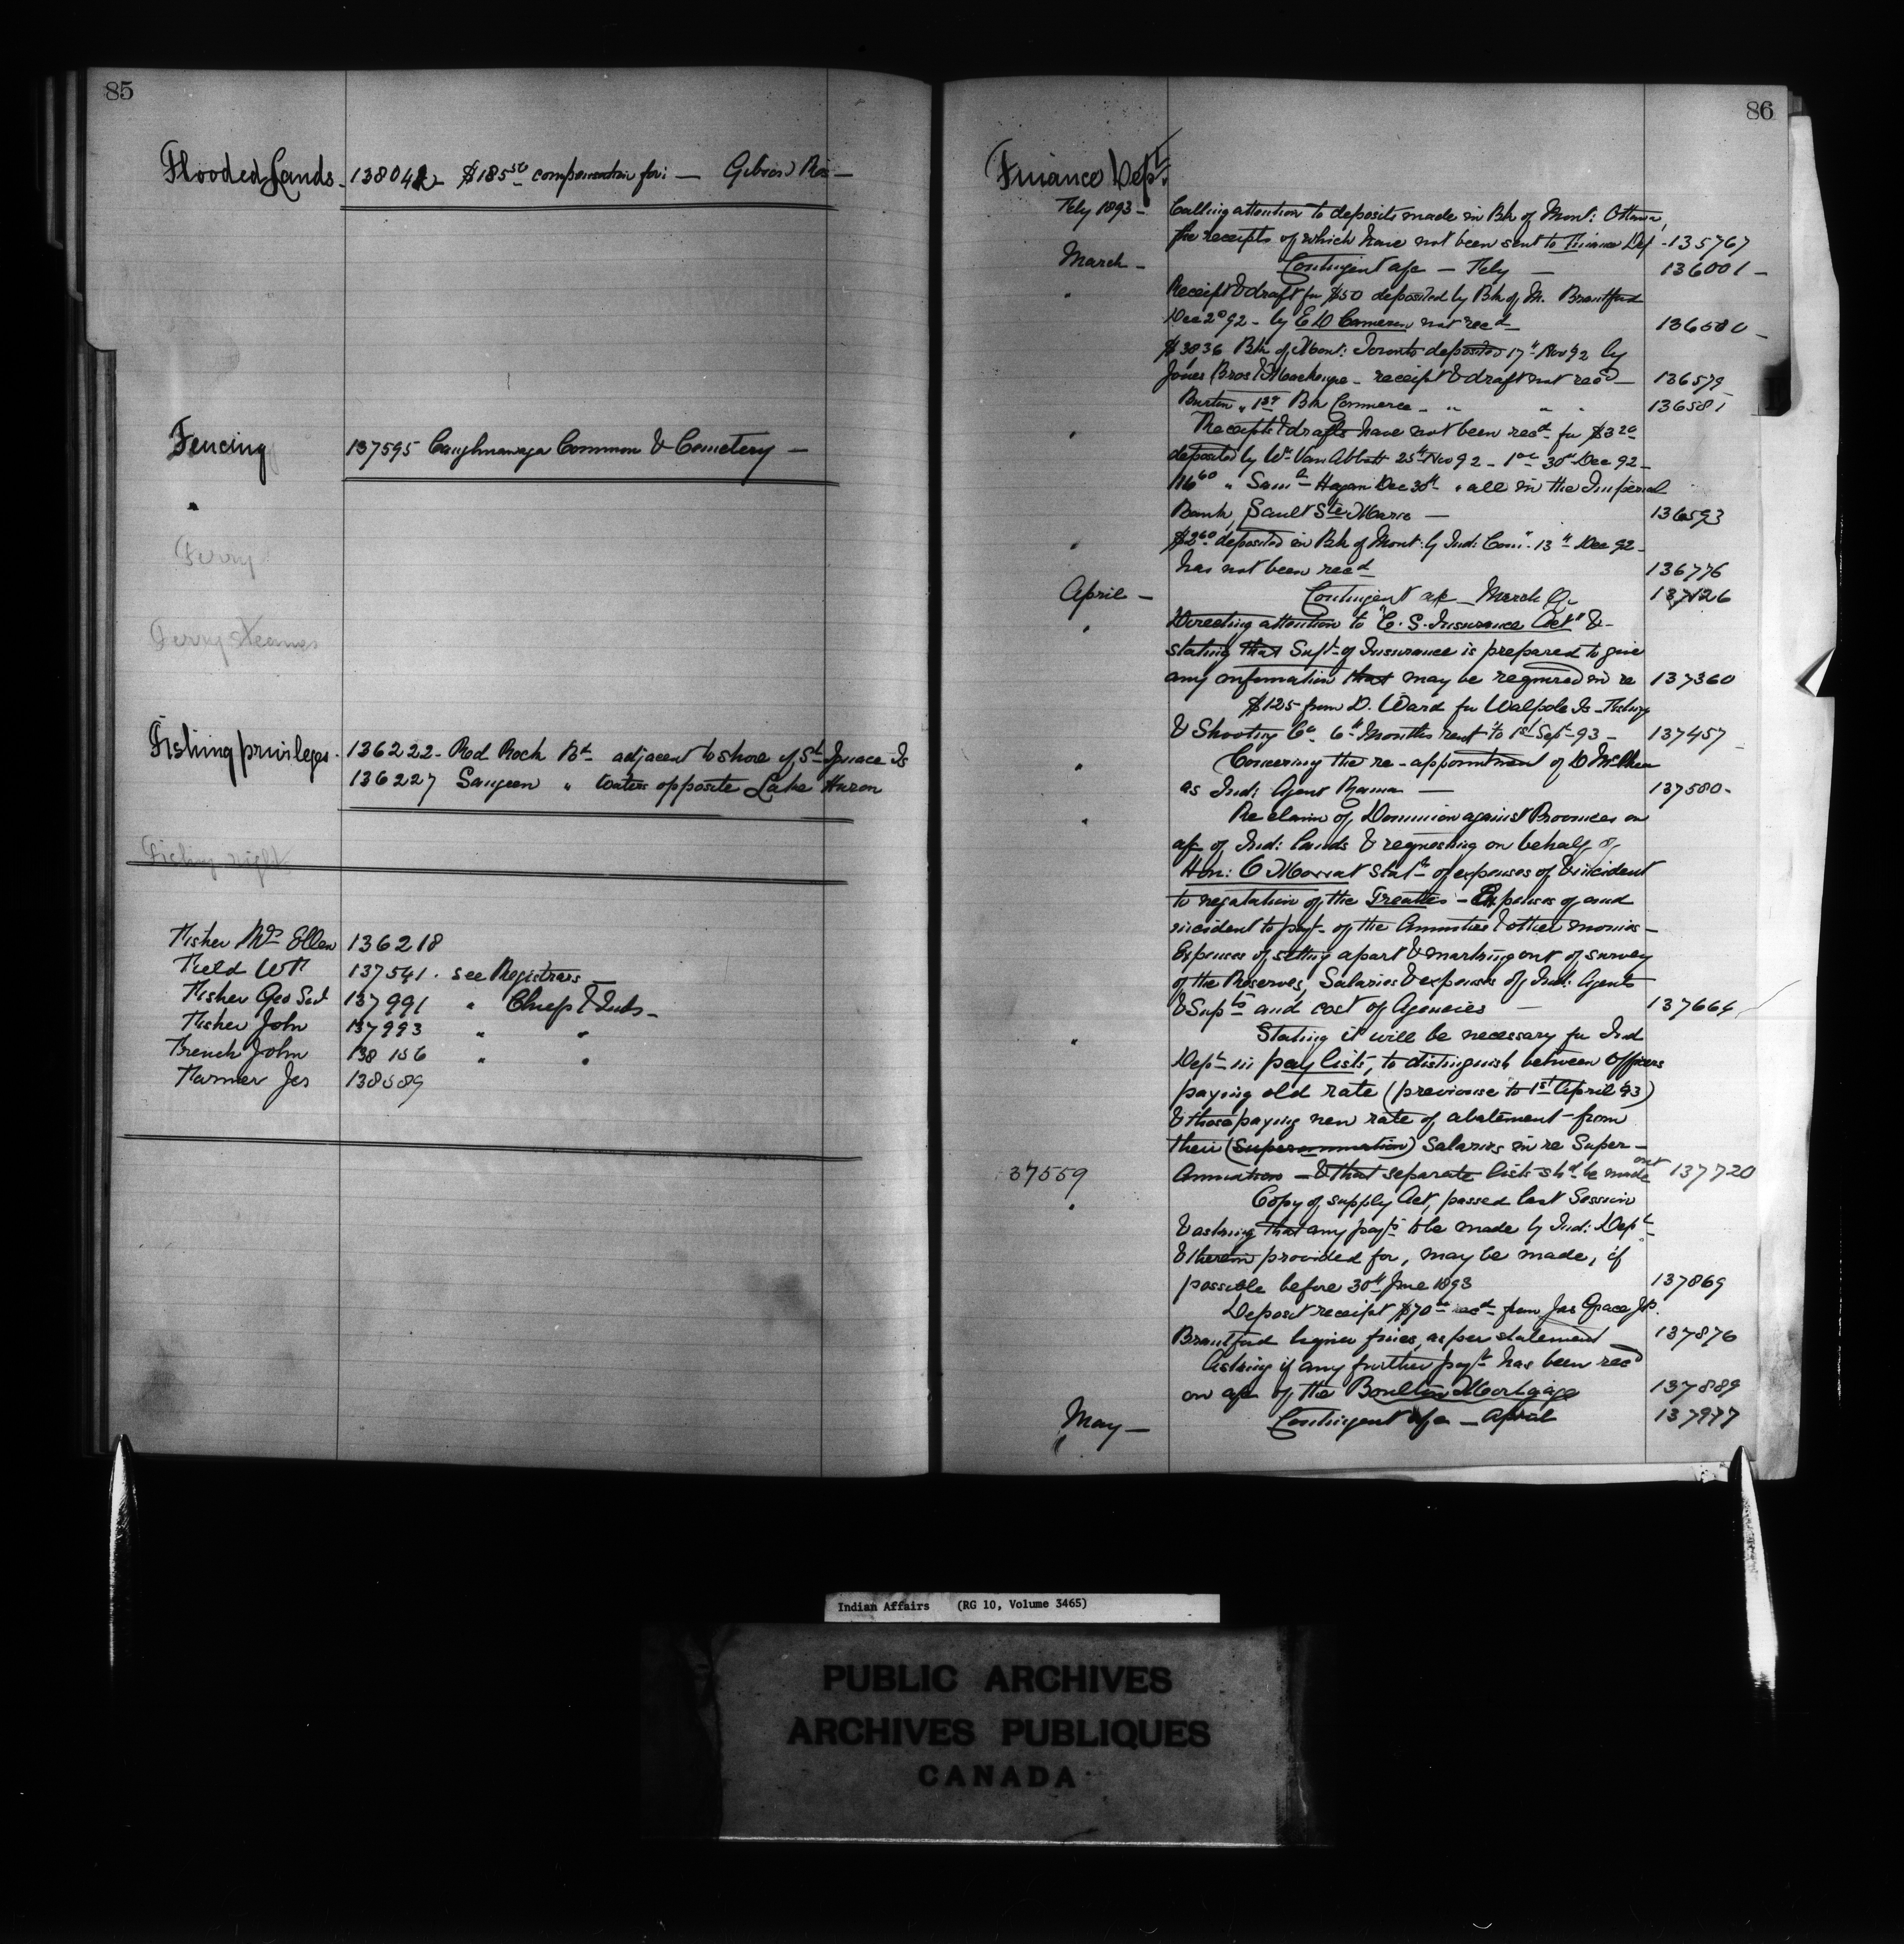 85
Flooded Lands - 138042 $185 50 compensation for: — Gibson Res —
Fencing 137595 Caughnawaga Common & Cemetery —
"
Ferry
Ferry Steamer
Fishing privileges - 136222 - Red Rock Bd adjacent to shore of St Ignace Is
136227 Saugeen " waters opposite Lake Huron
Fishing right
Fisher Mrs Ellen 136218
Field Wm 137541 . see Registrars
Fisher Geo 137991 " Chiefs & Inds -
Fisher John 137993 " "
French John 138156 " "
Farmer Jes 138589
86
Finance Dept
Feby 1893 - Calling attention to deposits made in Bk of Mont: Ottawa,
the receipts of which have not been sent to Finance Dep - 135767
March - Contingent a/c — Feby — 136001 -
" Receipt & draft for $50 deposited by Bk of M. Brantford
Dec 2nd 92 - by E D Cameron not recd 136580 -
$3836 Bk of Mont: Toronto deposited 17th Nov 92 by
Jones Bros & Mackenzie - receipt & draft not recd — 136579
Burton " Bk Commerce - " " " 136581
" Receipts & drafts have not been recd for $3 20
deposited by Wm Van Abbott 25th Nov 92 - 30th Dec 92 -
" Saml Hagan Dec 30th " all in the Imperial
Bank, Sault Ste Marie — 136593
" $2 60 deposited in Bk of Mont: by Ind: Comr. 13th Dec 92 -
has not been recd 136776
April - Contingent a/c - March 137126
" Directing attention to "C. S. Insurance Act" & -
stating that Supt of Insurance is prepared to give
any information that may be required in re 137360
$125 from D. Ward for Walpole Is - Fishing
& Shooting Co 6th Months rent to 1st Sept 93 - 137457 -
" Concerning the re-appointment of D McPhee
as Ind: Agent Rama — 137580 -
" Re claim of Dominion against Provinces on
a/c of Ind: Lands & requesting on behalf of
Hon: O Mowat statt of expenses of & incident
to negotiation of the Treaties - Expenses of and
incident to payt of the Annuities & other monies -
Expenses of setting apart & marking out of survey
of the Reserves, Salaries & expenses of Ind: Agents
& Supts and cost of Agencies — 137664
" Stating it will be necessary for Ind
Dept in pay lists, to distinguish between Officers
paying old rate (previous to 1st April 93)
& those paying new rate of abatement from
their (Superannuation) Salaries in re Super-
37559 Annuation - & that separate lists shd be made out 137720
" Copy of Supply Act, passed last Session
& asking that any payts to be made by Ind: Dept
& therein provided for, may be made, if
possible before 30th June 1893 137869
Deposit receipt $70 recd from Jas Grace J.P.
Brantford liquor fines, as per statement 137876
Asking if any further payt has been recd
on a/c of the Boulton Mortgage 137889
May - Contingent a/c - April 137977
Indian Affairs (RG 10, Volume 3465)
PUBLIC ARCHIVES
ARCHIVES PUBLIQUES
CANADA